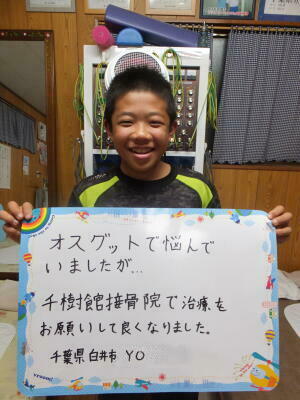 オスグットで悩んで
いましたが…
千樹館接骨院で治療を
お願いして良くなりました。
千葉県白井市 YO